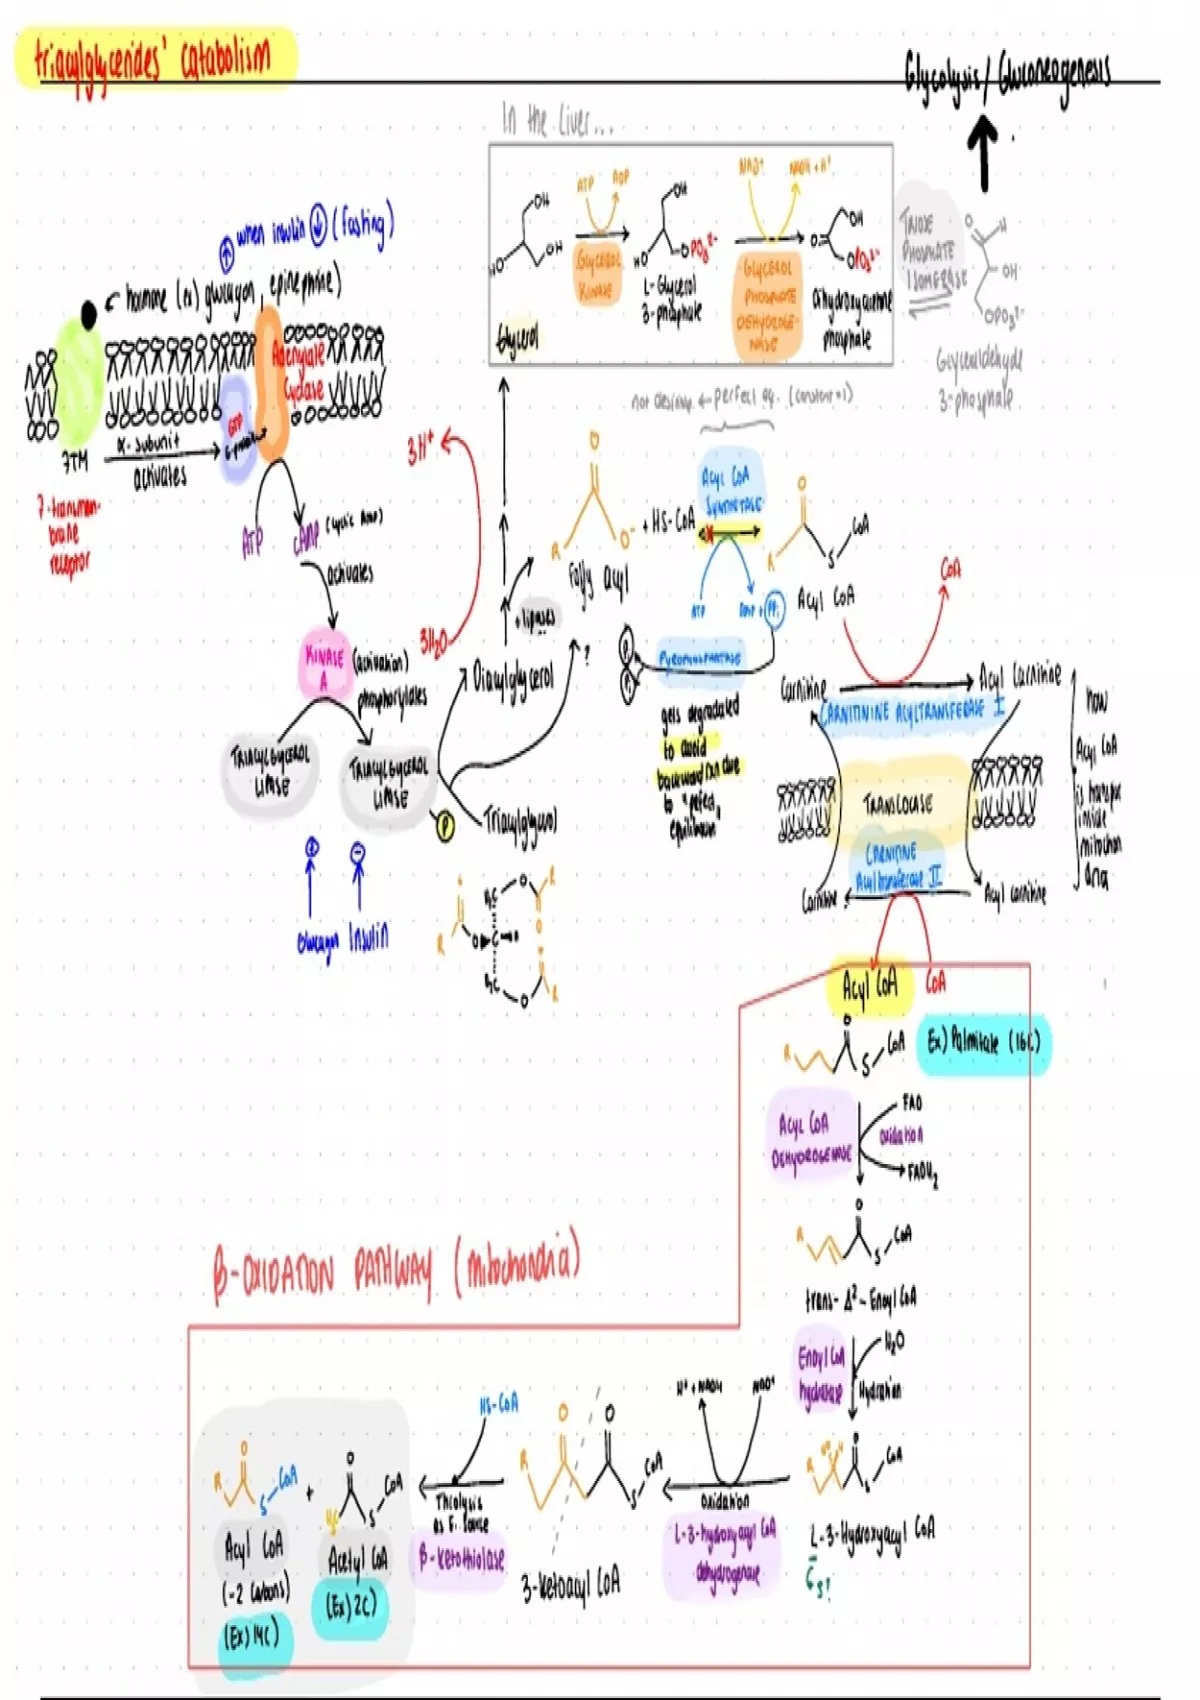 triacylglycerides' catabolism
Glycolysis / Gluconeogenesis
In the liver...
ATP
ADP
NAD⁺
NADH + H⁺
OH
OH
HO
GLYCEROL
KINASE
Glycerol
OH
HO
OPO₃²⁻
L-Glycerol
3-phosphate
GLYCEROL
PHOSPHATE
DEHYDROGE-
NASE
OH
O
OPO₃²⁻
dihydroxyacetone
phosphate
TRIOSE
PHOSPHATE
ISOMERASE
O
H
OH
OPO₃²⁻
Glyceraldehyde
3-phosphate
when insulin ↓ (fasting)
hormone (ex) glucagon, epinephrine)
Adenylate
Cyclase
GTP
G-protein
α-subunit
activates
7TM
7-transmem-
brane
receptor
ATP
cAMP (cyclic AMP)
activates
KINASE
A
(activation)
phosphorylates
TRIACYLGLYCEROL
LIPASE
TRIACYLGLYCEROL
LIPASE
P
+
-
Glucagon
Insulin
3H⁺
3H₂O
Diacylglycerol
+ lipases
?
Triacylglycerol
O
R
O
H₂C
C
H₂C
O
O
O
O
R
R
not desirap. ← perfect eq. (constant=1)
O
R
O⁻
Fatty acyl
+ HS-CoA
ACYL CoA
SYNTHETASE
ATP
AMP + PPi
PYROPHOSPHATASE
Pi
Pi
gets degraded
to avoid
backward rxn due
to "perfect
equilibrium"
O
R
S
CoA
Acyl CoA
CoA
Carnitine
Acyl Carnitine
CARNITININE ACYLTRANSFERASE I
TRANSLOCASE
CARNITINE
Acyltransferase II
Carnitine
Acyl carnitine
How
Acyl CoA
is transpo
inside
mitochon
dria
Acyl CoA
CoA
R
O
S
CoA
Ex) Palmitate (16C)
ACYL CoA
DEHYDROGENASE
FAD
oxidation
FADH₂
R
O
S
CoA
trans-Δ²-Enoyl CoA
Enoyl CoA
hydratase
H₂O
Hydration
R
HO
H
O
S
CoA
L-3-Hydroxyacyl CoA
S!
β-OXIDATION PATHWAY (mitochondria)
H⁺ + NADH
NAD⁺
oxidation
L-3-hydroxyacyl CoA
dehydrogenase
R
O
O
S
CoA
3-Ketoacyl CoA
HS-CoA
Thiolysis
β-Ketothiolase
R
O
S
CoA
+
O
H₃C
S
CoA
Acyl CoA
(-2 carbons)
(Ex) 14C)
Acetyl CoA
(Ex) 2C)